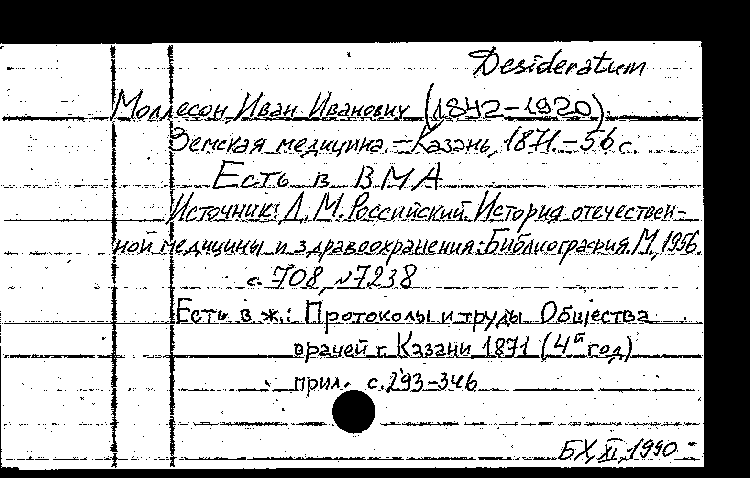 Desideratum
Моллесон, Иван Иванович (1842-1920).
Земская медицина. - Казань, 1871. - 56 с.
Есть в ВМА
Источник: Д. М. Российский. История отечествен-
ной медицины и здравоохранения: Библиография. М, 1956.
с. 708, №7238
Есть в ж.: Протоколы и труды Общества
врачей г. Казани 1871 (4й год)
прил. с. 293-346
БХ, XI, 1990